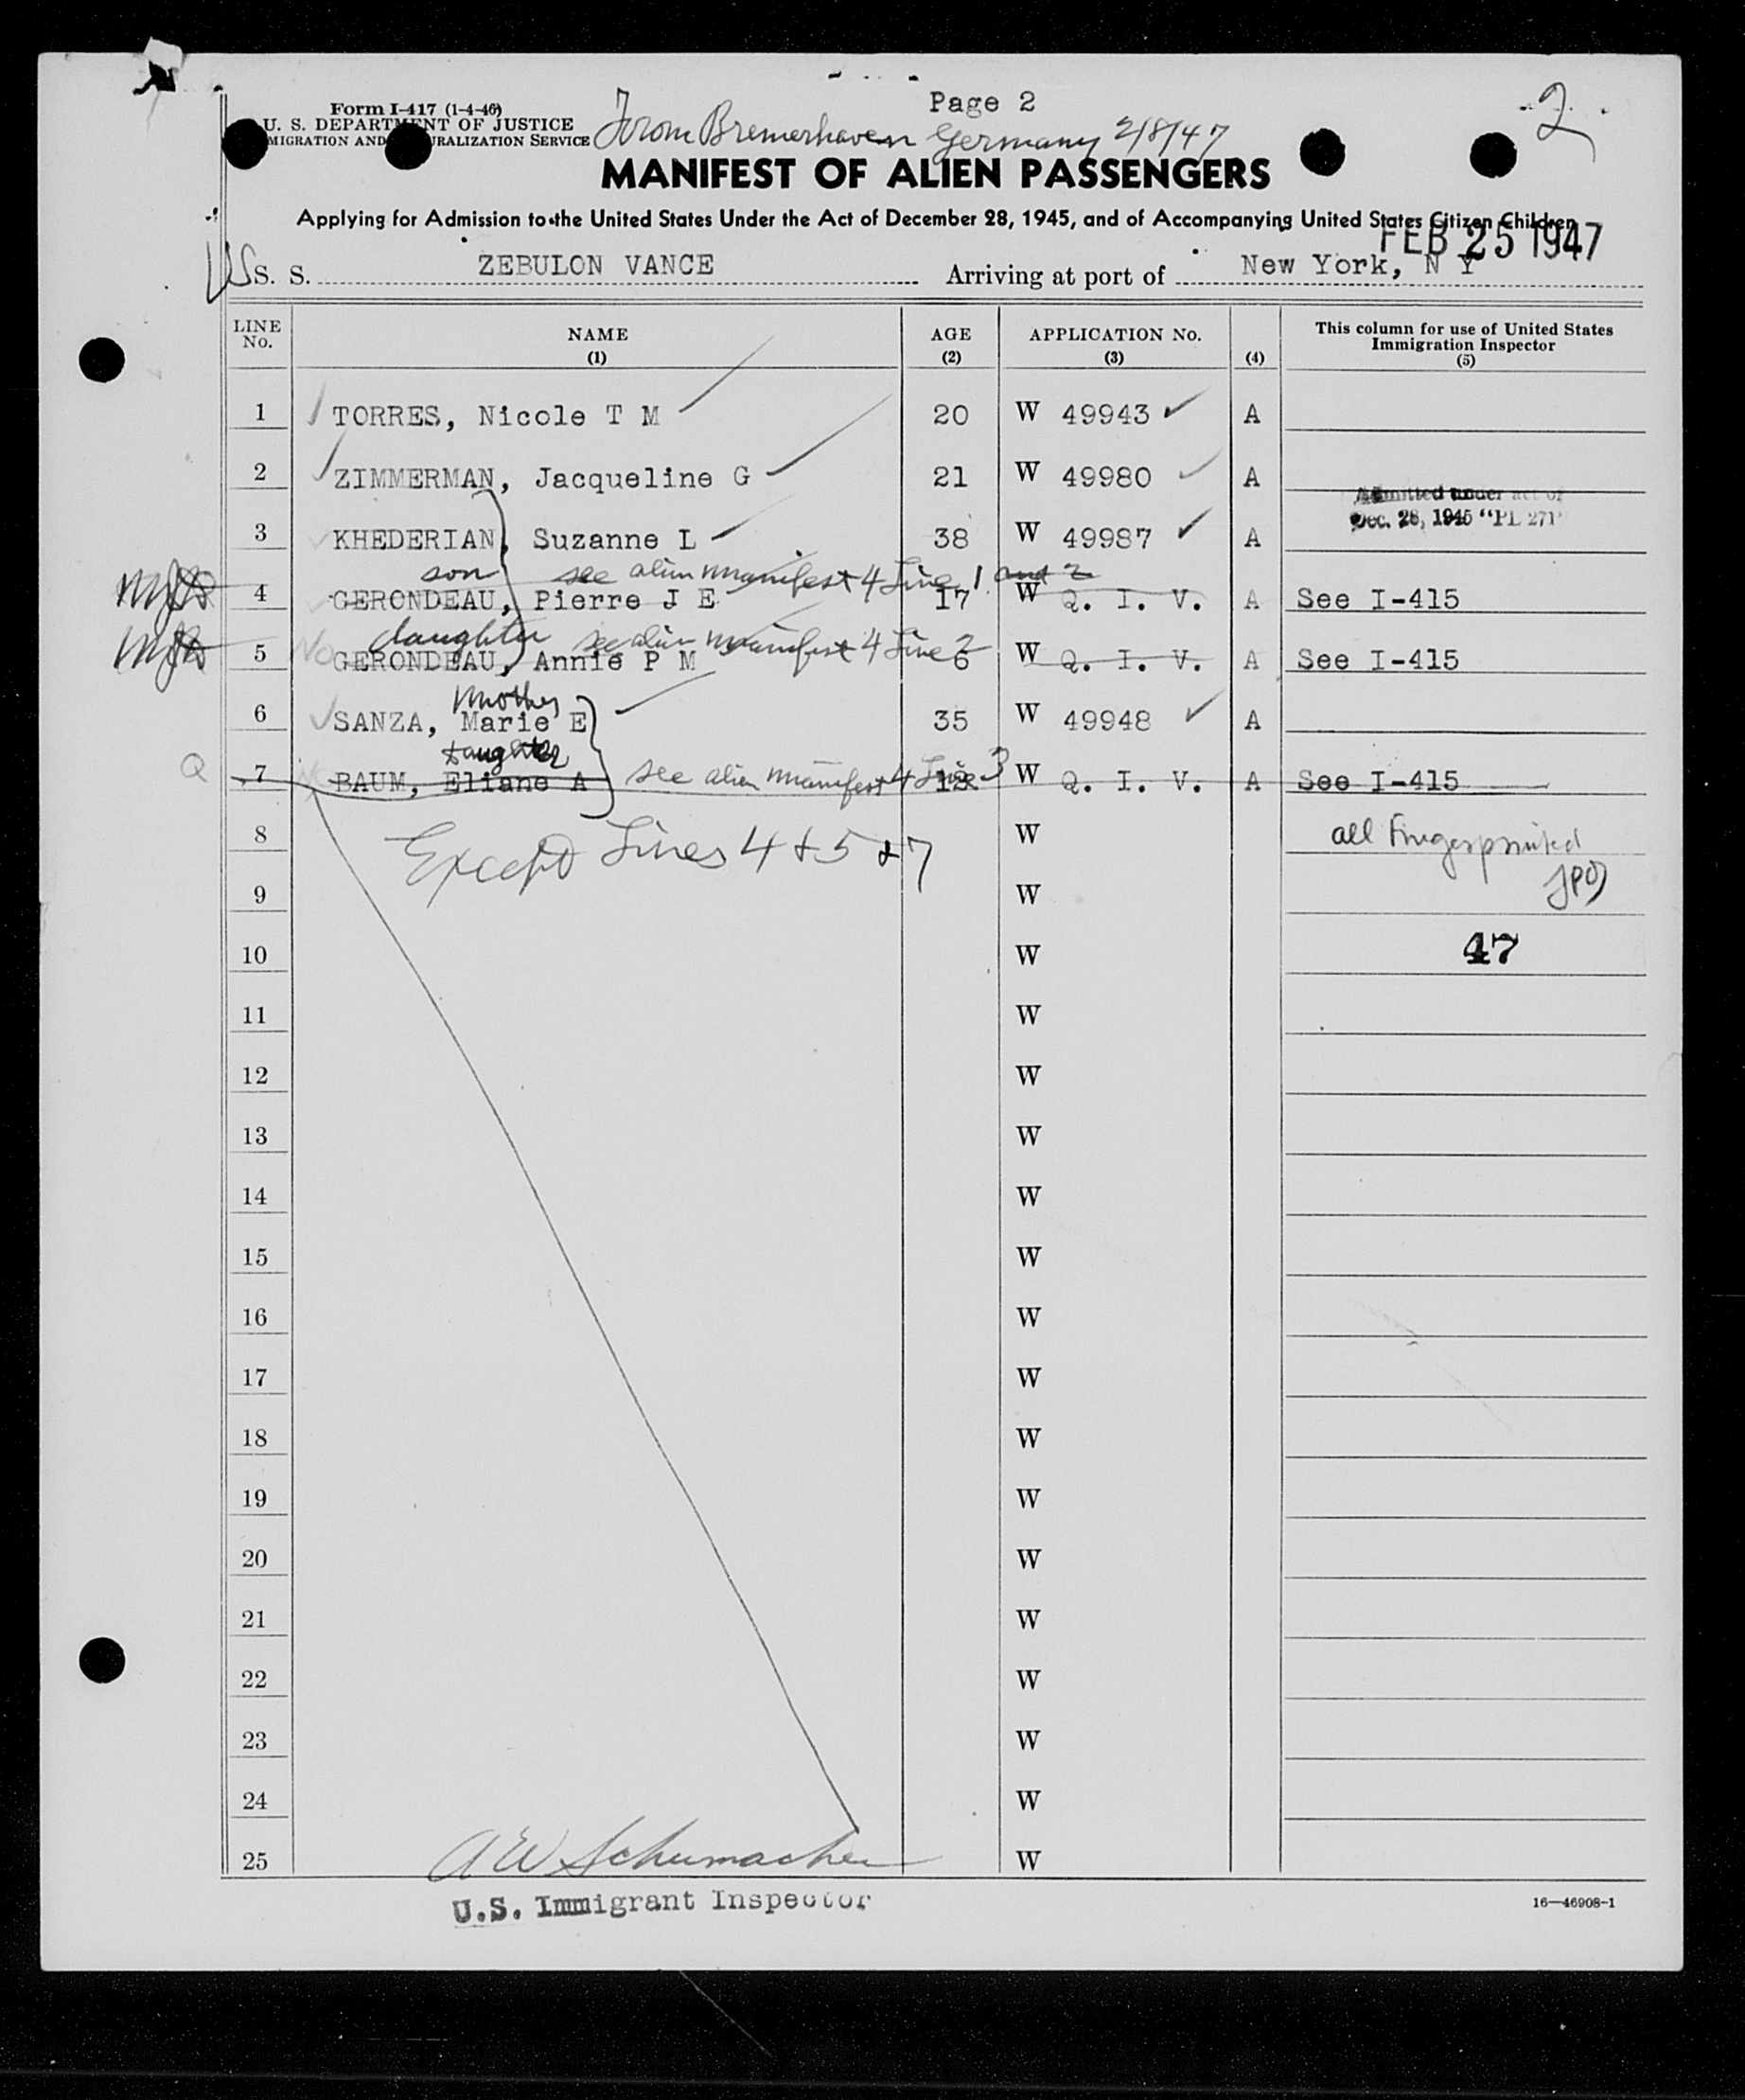 Page 2
2
Form I-417 (1-4-46)
U. S. DEPARTMENT OF JUSTICE
MIGRATION AND URALIZATION SERVICE
From Bremerhaven Germany 2/8/47
MANIFEST OF ALIEN PASSENGERS
Applying for Admission to the United States Under the Act of December 28, 1945, and of Accompanying United States Citizen Children
FEB 25 1947
US S. S. ZEBULON VANCE Arriving at port of New York, N Y
LINE No. NAME (1) AGE (2) APPLICATION No. (3) (4) This column for use of United States Immigration Inspector (5)
1 TORRES, Nicole T M 20 W 49943 A
2 ZIMMERMAN, Jacqueline G 21 W 49980 A
Admitted under act of
Dec. 28, 1945 "PL 271"
3 KHEDERIAN, Suzanne L 38 W 49987 A
son see alien manifest 4 Line 1 and 2
4 GERONDEAU, Pierre J E 17 W Q. I. V. A See I-415
daughter see alien manifest 4 Line 2
5 No GERONDEAU, Annie P M 6 W Q. I. V. A See I-415
mother
6 SANZA, Marie E 35 W 49948 A
daughter
Q 7 BAUM, Eliane A see alien manifest 4 Line 3 W Q. I. V. A See I-415
8 Except Lines 4 & 5 & 7 W all Fingerprinted
9 W
10 W 47
11 W
12 W
13 W
14 W
15 W
16 W
17 W
18 W
19 W
20 W
21 W
22 W
23 W
24 W
25 A W Schumacher W
U.S. Immigrant Inspector
16—46908-1